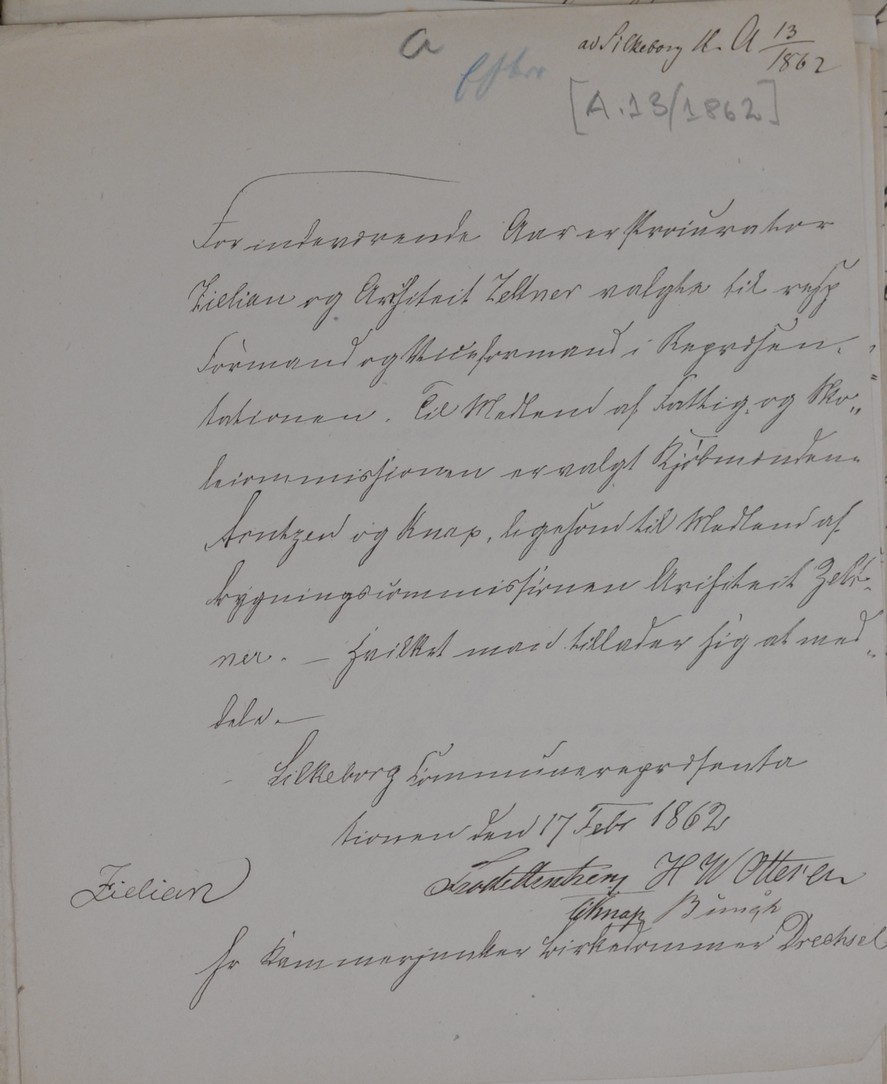 a
ad Silkeborg K. A 13/1862
[A.13/1862]
For indeværende Aar er Procurator
Zielian og Architect Zeltner valgte til resp
Formand og Viceformand i Repræsen-
tationen. Til Medlem af Fattig- og Sko-
lecommissionen er valgt Kjøbmændene
Arntzen og Knap, ligesom til Medlem af
Bygningscommissionen Architect Zelt-
ner. – Hvilket man tillader sig at med-
dele. –
Silkeborg Communerepræsenta
tionen den 17 Febr 1862
Zielian H W Ottesen
Knap
Hr Kammerjunker Birkedommer Drechsel